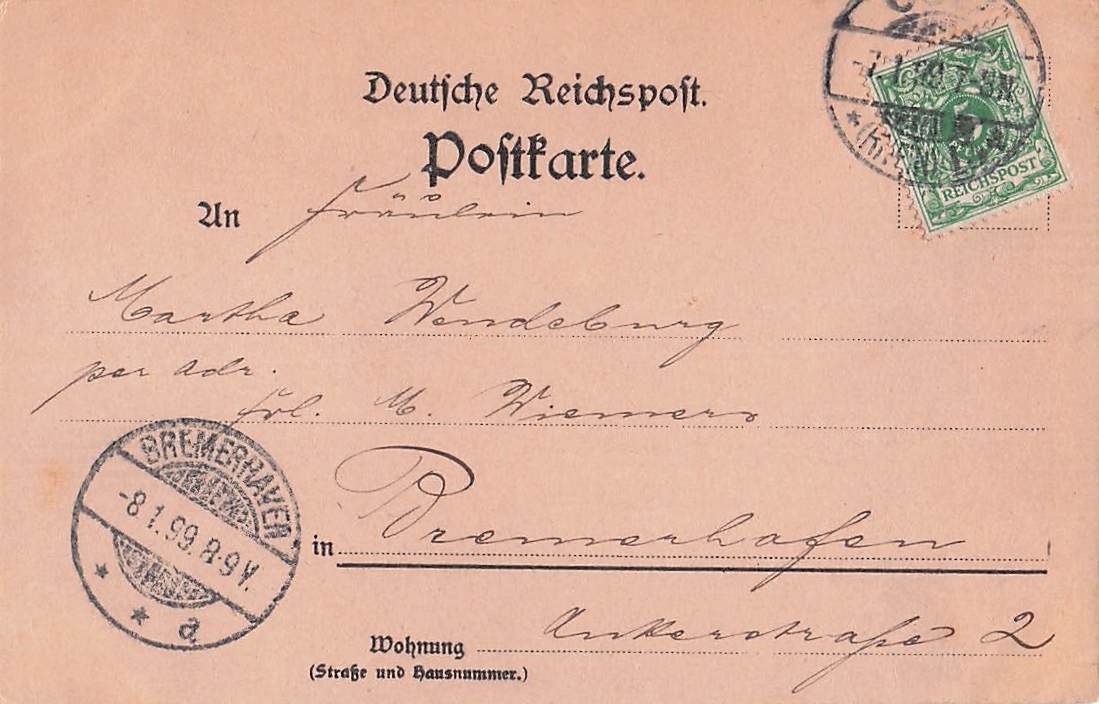 Deutsche Reichspost.
Postkarte.
An Fräulein
Martha Wendeburg
per Adr.
Frl. M. Wiemers
in Bremerhafen
Wohnung Ankerstraße 2
(Straße und Hausnummer.)
REICHSPOST
BREMERHAVEN
-8.1.99.8-9V.
* * a